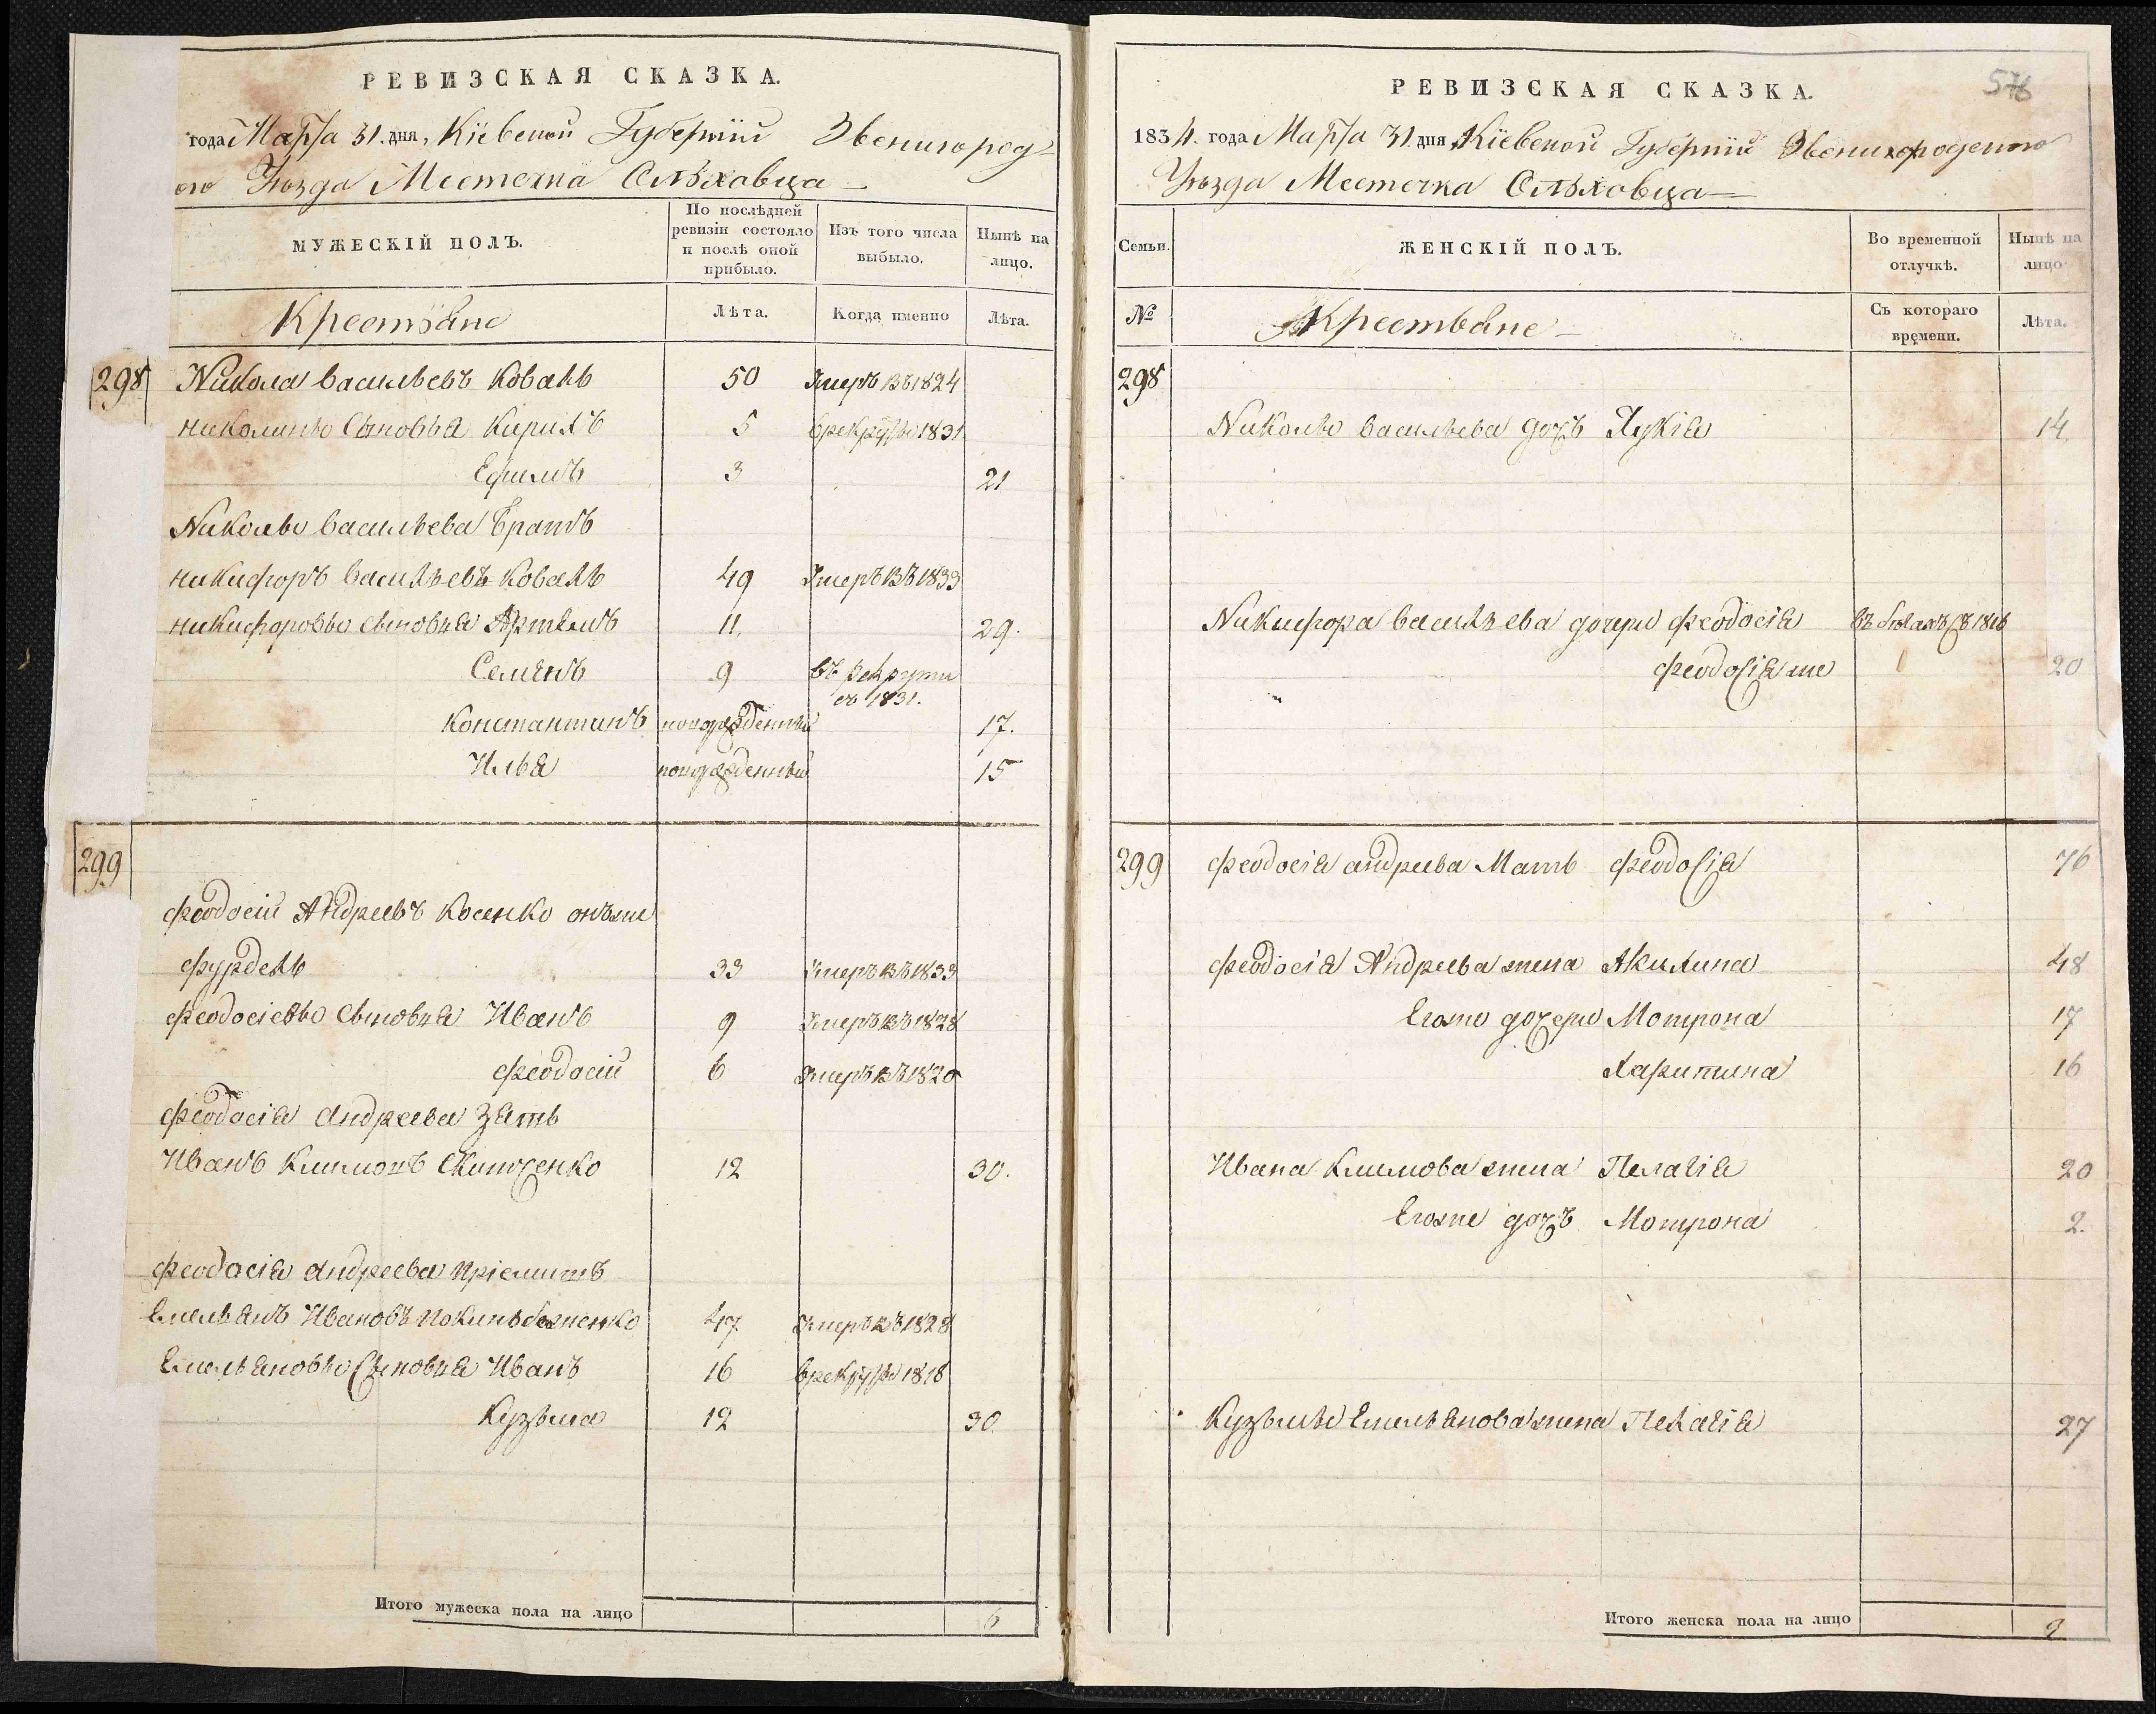 РЕВИЗСКАЯ СКАЗКА.
года Марта 31. дня, Кіевской Губерніи Звенигород-
го Уѣзда Местечка Ольховца
МУЖЕСКІЙ ПОЛЪ.
По послѣдней ревизіи состояло и послѣ оной прибыло.
Изъ того числа выбыло.
Нынѣ на лицо.
Крестьяне
Лѣта.
Когда именно
Лѣта.
298 Никола Васильевъ Коваль 50 Умеръ въ 1824
Николины Сыновья Кирилъ 5 в рекруты 1831
Ефимъ 3 21
Николы Васильева Братъ
Никифоръ Васильевъ Коваль 49 Умеръ въ 1833
Никифоровы сыновья Артемъ 11. 29.
Семенъ 9 въ рекруты
въ 1831.
Константинъ новорожденный 17.
Илья новорожденный 15
299
Феодосій Андреевъ Косенко онъже
Фурдель 33 Умеръ въ 1833
Феодосіевы Сыновья Иванъ 9 Умеръ въ 1828
Феодосій 6 Умеръ въ 1820
Феодосія Андреева Зять
Иванъ Климовъ 12 30.
Феодосія Андреева Пріемышъ
Емельянъ Ивановъ 47 Умеръ въ 1828
Емельяновы Сыновья Иванъ 16 в рекруты 1818
Кузьма 12 30.
Итого мужеска пола на лицо 6
РЕВИЗСКАЯ СКАЗКА.
576
1834. года Марта 31 дня Кіевской Губерніи Звенигородского
Уѣзда Местечка Ольховца
Семьи.
ЖЕНСКІЙ ПОЛЪ.
Во временной отлучкѣ.
Нынѣ на лицо
№
Крестьяне
Съ котораго времени.
Лѣта.
298
Николы Васильева дочь Лукія 14.
Никифора Васильева дочери Феодосія 1816
Феодосія же 20
299 Феодосія Андреева Мать Феодосія 76
Феодосія Андреева жена Акилина 48
Егоже дочери Мотрона 17
Харитина 16
Ивана Климова жена Пелагія 20
Егоже дочь Мотрона 2.
Кузьмы Емельянова жена Пелагія 27
Итого женска пола на лицо 9